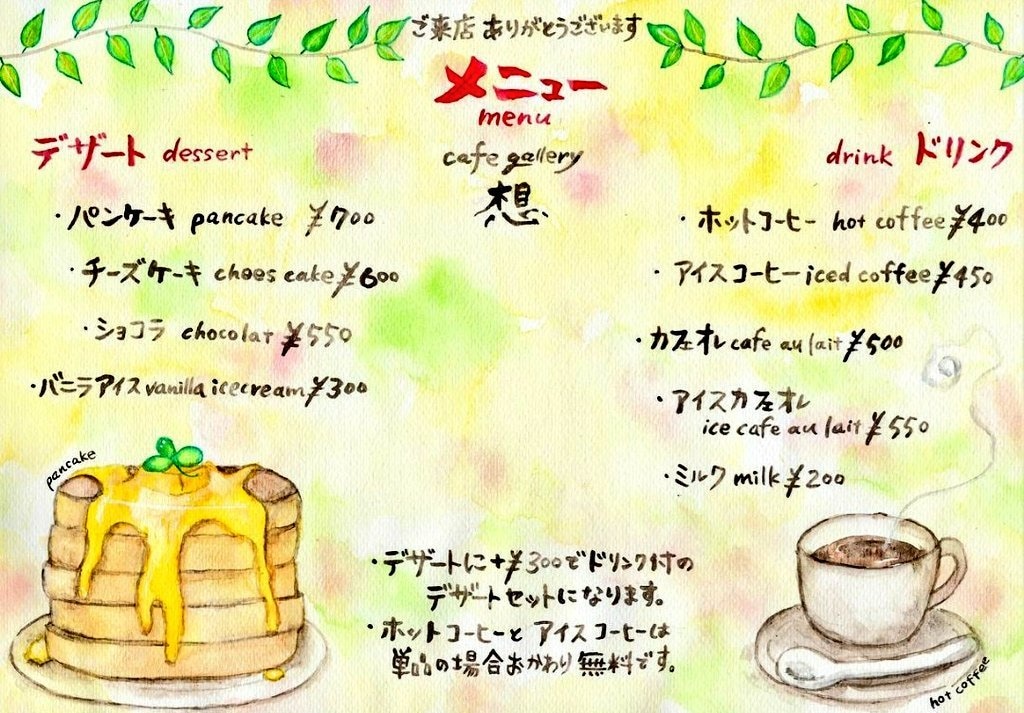 ご来店 ありがとうございます
メニュー
menu
cafe gallery
想
デザート dessert
・パンケーキ pancake ¥700
・チーズケーキ chees cake ¥600
・ショコラ chocolat ¥550
・バニラアイス vanilla icecream ¥300
drink ドリンク
・ホットコーヒー hot coffee ¥400
・アイスコーヒー iced coffee ¥450
・カフェオレ cafe au lait ¥500
・アイスカフェオレ
ice cafe au lait ¥550
・ミルク milk ¥200
pancake
・デザートに+¥300でドリンク付の
デザートセットになります。
・ホットコーヒーと アイスコーヒーは
単品の場合おかわり無料です。
hot coffee